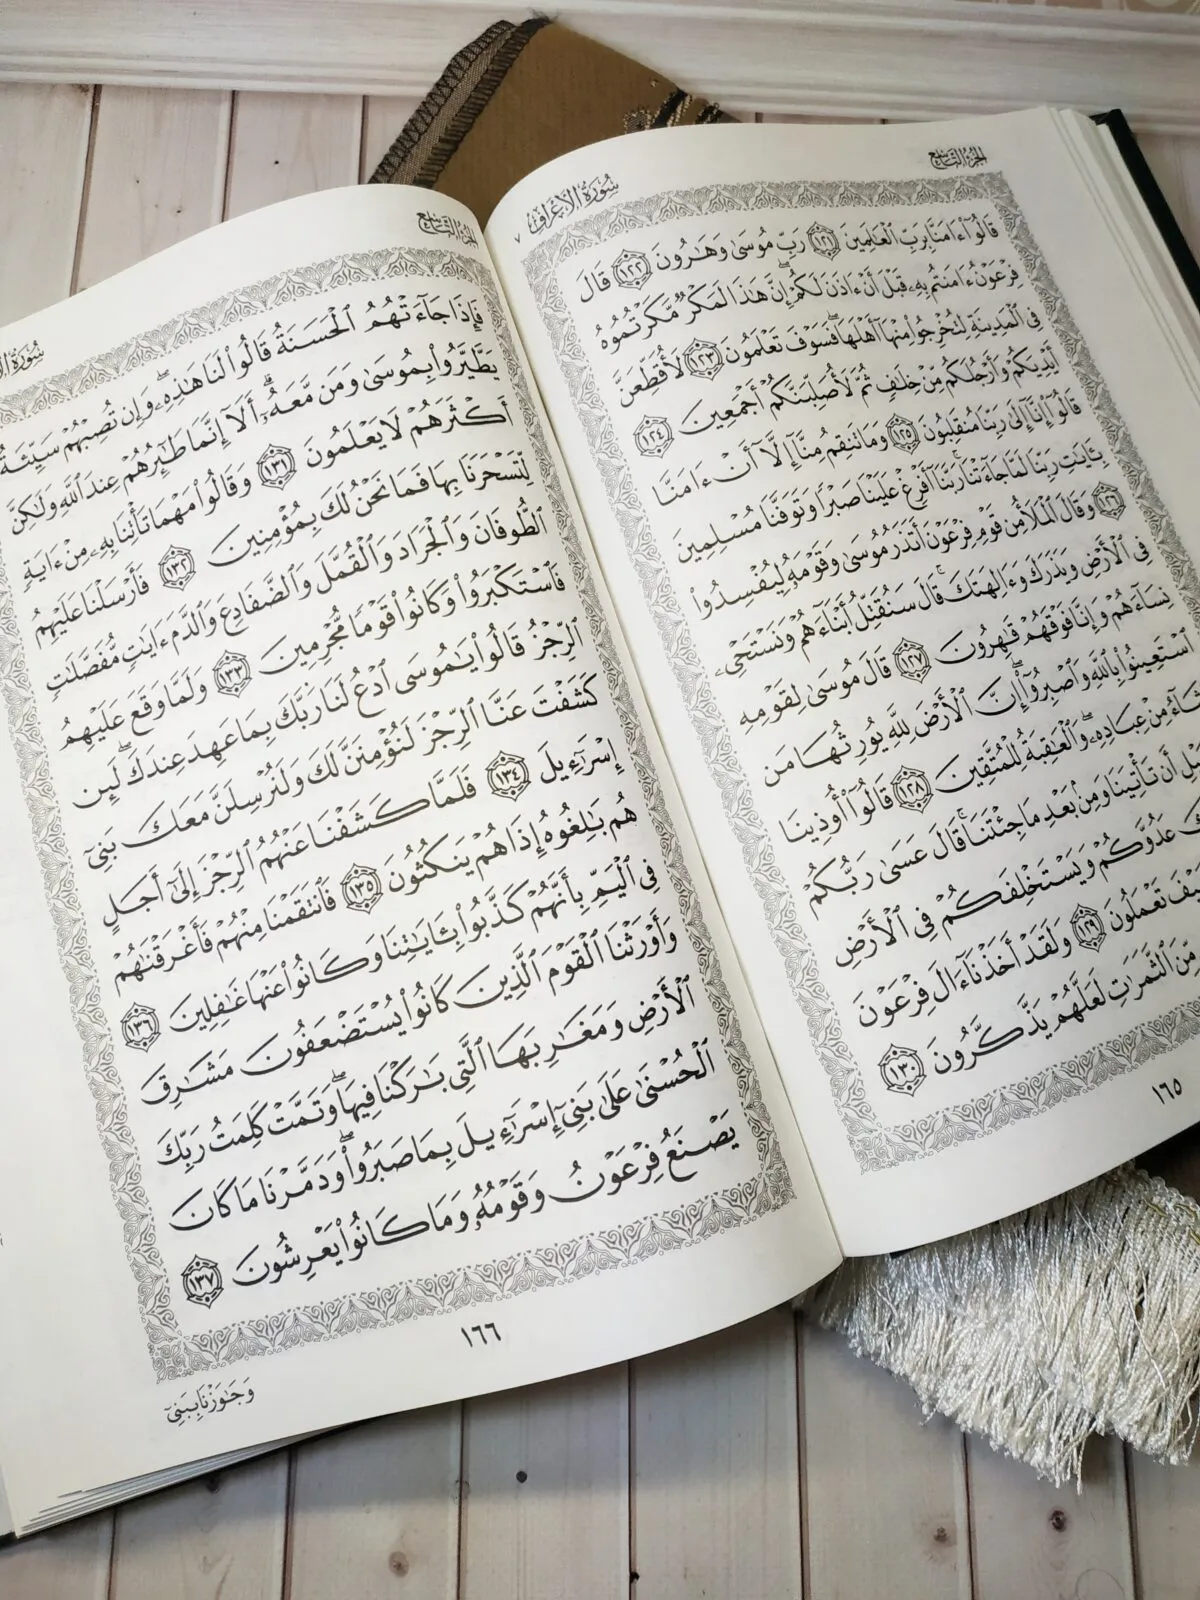 الجزء التاسع
سورة الأعراف ٧
قَالُوٓا۟ ءَامَنَّا بِرَبِّ ٱلْعَٰلَمِينَ ١٢١ رَبِّ مُوسَىٰ وَهَٰرُونَ ١٢٢ قَالَ
فِرْعَوْنُ ءَامَنتُم بِهِۦ قَبْلَ أَنْ ءَاذَنَ لَكُمْ إِنَّ هَٰذَا لَمَكْرٌ مَّكَرْتُمُوهُ
فِى ٱلْمَدِينَةِ لِتُخْرِجُوا۟ مِنْهَآ أَهْلَهَا فَسَوْفَ تَعْلَمُونَ ١٢٣ لَأُقَطِّعَنَّ
أَيْدِيَكُمْ وَأَرْجُلَكُم مِّنْ خِلَٰفٍ ثُمَّ لَأُصَلِّبَنَّكُمْ أَجْمَعِينَ ١٢٤
قَالُوٓا۟ إِنَّآ إِلَىٰ رَبِّنَا مُنقَلِبُونَ ١٢٥ وَمَا تَنقِمُ مِنَّآ إِلَّآ أَنْ ءَامَنَّا
بِـَٔايَٰتِ رَبِّنَا لَمَّا جَآءَتْنَا رَبَّنَآ أَفْرِغْ عَلَيْنَا صَبْرًا وَتَوَفَّنَا مُسْلِمِينَ
١٢٦ وَقَالَ ٱلْمَلَأُ مِن قَوْمِ فِرْعَوْنَ أَتَذَرُ مُوسَىٰ وَقَوْمَهُۥ لِيُفْسِدُوا۟
فِى ٱلْأَرْضِ وَيَذَرَكَ وَءَالِهَتَكَ قَالَ سَنُقَتِّلُ أَبْنَآءَهُمْ وَنَسْتَحْىِۦ
نِسَآءَهُمْ وَإِنَّا فَوْقَهُمْ قَٰهِرُونَ ١٢٧ قَالَ مُوسَىٰ لِقَوْمِهِ
ٱسْتَعِينُوا۟ بِٱللَّهِ وَٱصْبِرُوٓا۟ إِنَّ ٱلْأَرْضَ لِلَّهِ يُورِثُهَا مَن
مِنْ عِبَادِهِۦ وَٱلْعَٰقِبَةُ لِلْمُتَّقِينَ ١٢٨ قَالُوٓا۟ أُوذِينَا
أَن تَأْتِيَنَا وَمِنۢ بَعْدِ مَا جِئْتَنَا قَالَ عَسَىٰ رَبُّكُمْ
عَدُوَّكُمْ وَيَسْتَخْلِفَكُمْ فِى ٱلْأَرْضِ
تَعْمَلُونَ ١٢٩ وَلَقَدْ أَخَذْنَآ ءَالَ فِرْعَوْنَ
مِّنَ ٱلثَّمَرَٰتِ لَعَلَّهُمْ يَذَّكَّرُونَ ١٣٠
١٦٥
الجزء التاسع
سورة
فَإِذَا جَآءَتْهُمُ ٱلْحَسَنَةُ قَالُوا۟ لَنَا هَٰذِهِۦ وَإِن تُصِبْهُمْ سَيِّئَةٌ
يَطَّيَّرُوا۟ بِمُوسَىٰ وَمَن مَّعَهُۥٓ أَلَآ إِنَّمَا طَٰٓئِرُهُمْ عِندَ ٱللَّهِ وَلَٰكِنَّ
أَكْثَرَهُمْ لَا يَعْلَمُونَ ١٣١ وَقَالُوا۟ مَهْمَا تَأْتِنَا بِهِۦ مِنْ ءَايَةٍ
لِّتَسْحَرَنَا بِهَا فَمَا نَحْنُ لَكَ بِمُؤْمِنِينَ ١٣٢ فَأَرْسَلْنَا عَلَيْهِمُ
ٱلطُّوفَانَ وَٱلْجَرَادَ وَٱلْقُمَّلَ وَٱلضَّفَادِعَ وَٱلدَّمَ ءَايَٰتٍ مُّفَصَّلَٰتٍ
فَٱسْتَكْبَرُوا۟ وَكَانُوا۟ قَوْمًا مُّجْرِمِينَ ١٣٣ وَلَمَّا وَقَعَ عَلَيْهِمُ
ٱلرِّجْزُ قَالُوا۟ يَٰمُوسَى ٱدْعُ لَنَا رَبَّكَ بِمَا عَهِدَ عِندَكَ لَئِن
كَشَفْتَ عَنَّا ٱلرِّجْزَ لَنُؤْمِنَنَّ لَكَ وَلَنُرْسِلَنَّ مَعَكَ بَنِىٓ
إِسْرَٰٓءِيلَ ١٣٤ فَلَمَّا كَشَفْنَا عَنْهُمُ ٱلرِّجْزَ إِلَىٰٓ أَجَلٍ
هُم بَٰلِغُوهُ إِذَا هُمْ يَنكُثُونَ ١٣٥ فَٱنتَقَمْنَا مِنْهُمْ فَأَغْرَقْنَٰهُمْ
فِى ٱلْيَمِّ بِأَنَّهُمْ كَذَّبُوا۟ بِـَٔايَٰتِنَا وَكَانُوا۟ عَنْهَا غَٰفِلِينَ ١٣٦
وَأَوْرَثْنَا ٱلْقَوْمَ ٱلَّذِينَ كَانُوا۟ يُسْتَضْعَفُونَ مَشَٰرِقَ
ٱلْأَرْضِ وَمَغَٰرِبَهَا ٱلَّتِى بَٰرَكْنَا فِيهَا وَتَمَّتْ كَلِمَتُ رَبِّكَ
ٱلْحُسْنَىٰ عَلَىٰ بَنِىٓ إِسْرَٰٓءِيلَ بِمَا صَبَرُوا۟ وَدَمَّرْنَا مَا كَانَ
يَصْنَعُ فِرْعَوْنُ وَقَوْمُهُۥ وَمَا كَانُوا۟ يَعْرِشُونَ ١٣٧
١٦٦
وَجَٰوَزْنَا بِبَنِىٓ